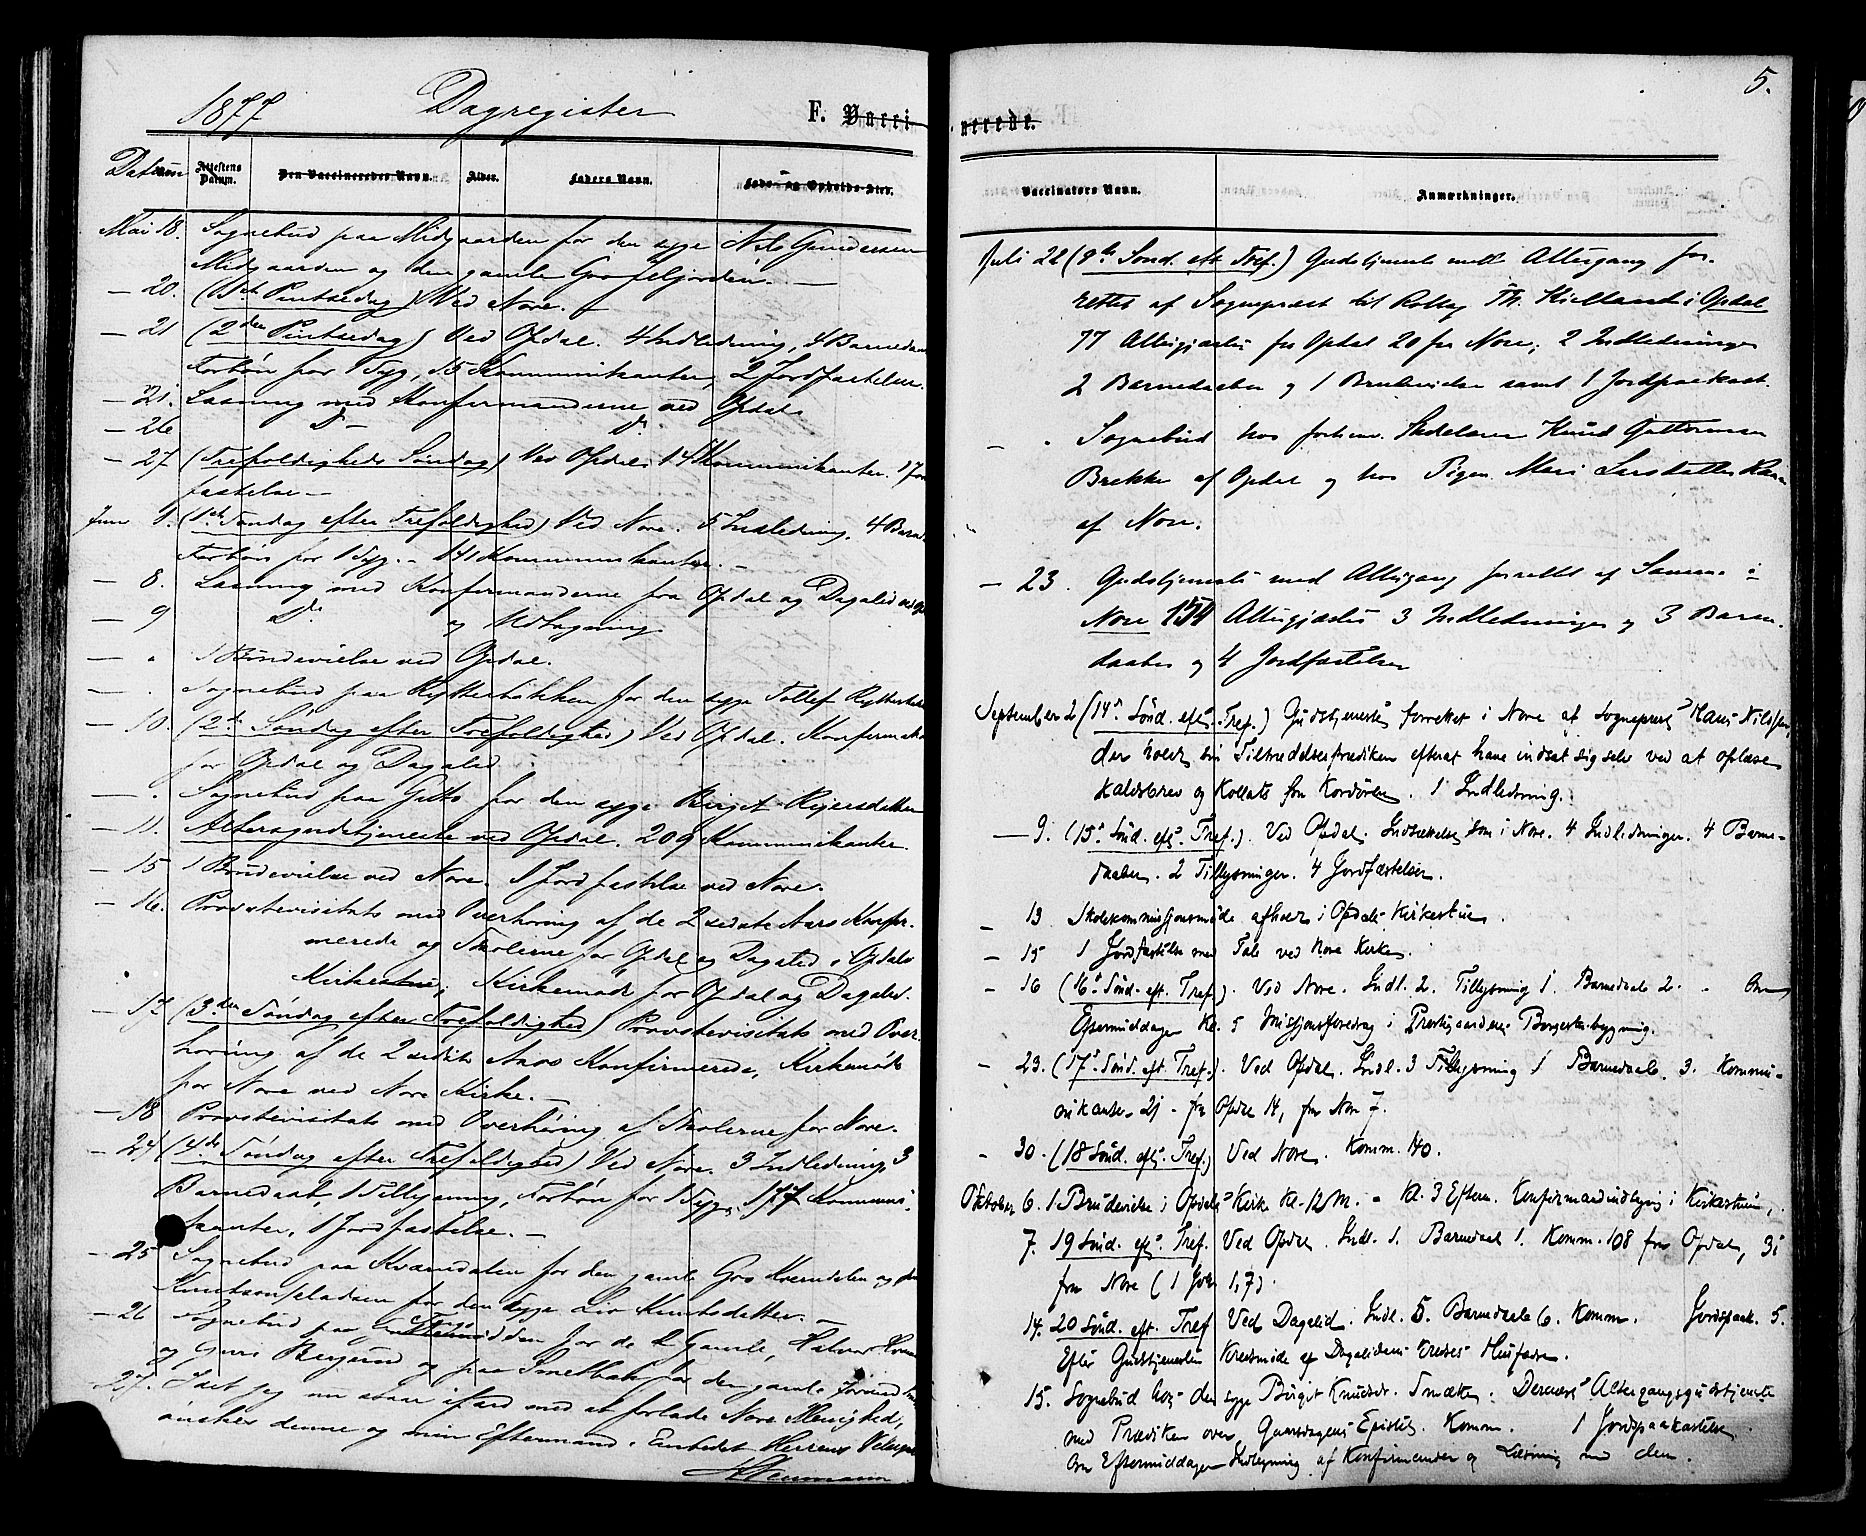 1877 Dagregister F. Vacci
Datum Attestens Datum. Den Vaccineredes Navn. Alder. Faders Navn. Føde- og Opholds-Sted.
Mai 18. Sognebud paa Midgaarden for den syge Nils Gundersen
Midgaarden og den gamle Gro
— 20. (1ste Pintsedag) Ved Nore. —
— 21 (2den Pintsedag) Ved Opdal. 4 Indledning, 4 Barnedaab
Forbøn for 1 Syg, 15 Kommunikanter, 2 Jordfæstelser.
— 21. Læsning med Konfirmanderne ved Opdal
— 26 Do — Do
— 27 (Trefoldigheds Søndag) Ved Opdal. 14 Kommunikanter. 1 Jord
fæstelse —
Juni (1ste Søndag efter Trefoldighed) Ved Nore. 5 Indledning. 4 Barned
Forbøn for 1 Syg. — 141 Kommunikanter. —
— 8. Læsning med Konfirmanderne fra Opdal og Dagalid
— 9 Do og Udtagning.
— " 1 Brudevielse ved Opdal.
— " Sognebud paa for den syge Tollef
— 10. (2den Søndag efter Trefoldighed) Ved Opdal. Konfirmation
for Opdal og Dagalid
— " Sognebud paa for den syge Birgit Reiersdatter
— 11. Altergudstjeneste ved Opdal. 209 Kommunikanter.
— 15 1 Brudevielse ved Nore. 1 Jordfæstelse ved Nore.
— 16. Provstevisitats med Overhøring af de 2 sidste Aars Konfir-
merede og Skolerne for Opdal og Dagalid i Opdals
Kirkestue, Kirkemøde for Opdal og Dagalid.
— 17 (3die Søndag efter Trefoldighed) Provstevisitats med Over
høring af de 2 sidste Aars Konfirmerede, Kirkemøde
for Nore ved Nore Kirke. —
— 18 Provstevisitats med Overhøring af Skolerne for Nore.
— 24 (4de Søndag efter Trefoldighed) Ved Nore. 3 Indledning 3
Barnedaab, 1 Tillysning, Forbøn for 1 Syg, Kommuni-
kanter, 1 Jordfæstelse. —
— 25 Sognebud paa Kværndalen for den gamle Gro Kværndalen og paa
Knutsonpladsen for den syge Liv Knutsdatter. —
— 26 Sognebud paa for de 2 Gamle, Halvor
og og paa for den gamle
— 27. Idet jeg nu staar ifærd med at forlade Nore Menighed,
ønsker denne og min Eftermand i Embedet Herrens Velsignelse
5.
nerede.
Vaccinators Navn. Anmærkninger.
Juli 22 (8de Sønd. eft Tref.) Gudstjeneste med Altergang for-
rettet af Sognepræst til Rollag Th. Kielland i Opdal
77 Altergjæster fra Opdal 20 fra Nore, 2 Indledninger
2 Barnedaaber og 1 Brudevielse samt 1 Jordpaakast.
— " Sognebud hos forhenv. Skolelærer Knud Guttormsen
Brekke af Opdal og hos Pigen Mari Larsdatter
af Nore.
— 23. Gudstjeneste med Altergang forrettet af Samme i
Nore 154 Altergjæster 3 Indledninger og 3 Barne-
daaber og 4 Jordfæstelser
September 2 (14de Sønd. eft. Tref.) Gudstjeneste forrettet i Nore af Sognepræst Hans Nilssen,
der holdt sin Tiltrædelsesprædiken efterat have indsat sig selv ved at oplæse
Kaldsbrev og Kollats fra Kordøren. 1 Indledning.
— 9. (15de Sønd. eft. Tref.). Ved Opdal. Indsættelse som i Nore. 4 Indledninger. 4 Barne-
daaber. 2 Tillysninger. 4 Jordfæstelser.
— 13 Skolekommissjonsmøde afholdt i Opdals Kirkestue.
— 15 1 Jordfæstelse med Tale ved Nore Kirke.
— 16 (16de Sønd. eft. Tref.). Ved Nore. Indl. 2. Tillysning 1. Barnedaab 2. - Om
Eftermiddagen Kl. 5 Missjonsforedrag i Præstegaardens Borgestubygning.
— 23. (17de Sønd. eft. Tref.). Ved Opdal. Indl. 3 Tillysning 1 Barnedaab. 3. Kommu-
nikanter 21 - fra Opdal 14, fra Nore 7.
- 30. (18 Sønd. eft. Tref.) Ved Nore. Komm. 40.
Oktober 6. 1 Brudevielse i Opdals Kirke Kl. 12 M. - Kl. 3 Efterm. Konfirmandindlysning i Kirkestuen.
7. 19 Sønd. eft. Tref. Ved Opdal. Indl. 1. Barnedaab 1. Komm. 108 fra Opdal, 31
fra Nore (
14. 20 Sønd. eft. Tref Ved Dagalid. Indl. 5. Barnedaab 6. Komm. Jordpaak. 5.
Efter Gudstjenesten Kredsmøde af Dagalidens Kredses Husfædre.
15. Sognebud hos den syge Birgit Knudsdr. Dernæst Altergangsgudstjeneste
med Prædiken over Epistel. Komm. 1 Jordpaakastelse
Om Eftermiddagen Indlysning af Konfirmander og Læsning med dem.